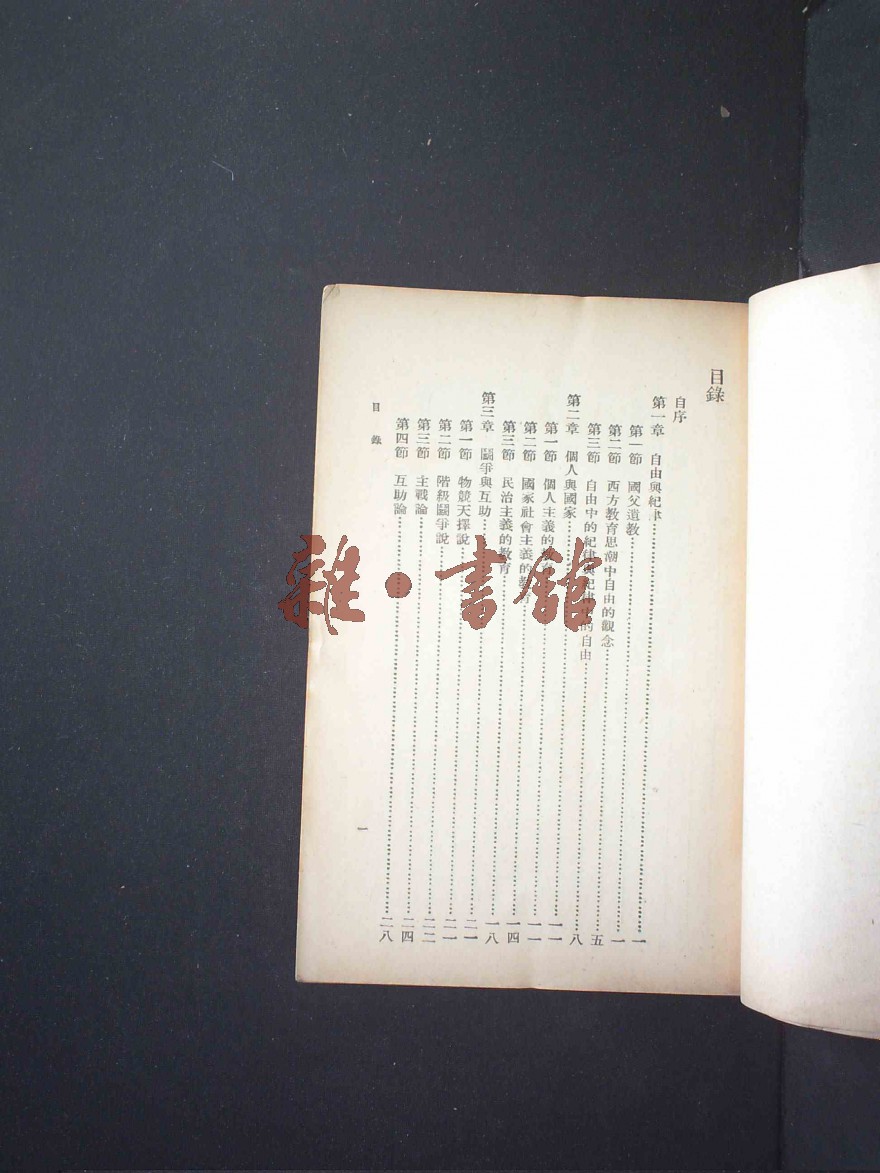 目錄
自序
第一章 自由與紀律……一
第一節 國父遺教……一
第二節 西方教育思潮中自由的觀念……五
第三節 自由中的紀律與紀律中的自由……八
第二章 個人與國家……一一
第一節 個人主義的教育……一一
第二節 國家社會主義的教育……一四
第三節 民治主義的教育……一八
第三章 鬬爭與互助……二一
第一節 物競天擇說……二一
第二節 階級鬬爭說……二二
第三節 主戰論……二四
第四節 互助論……二八
目錄
一
雜·書館